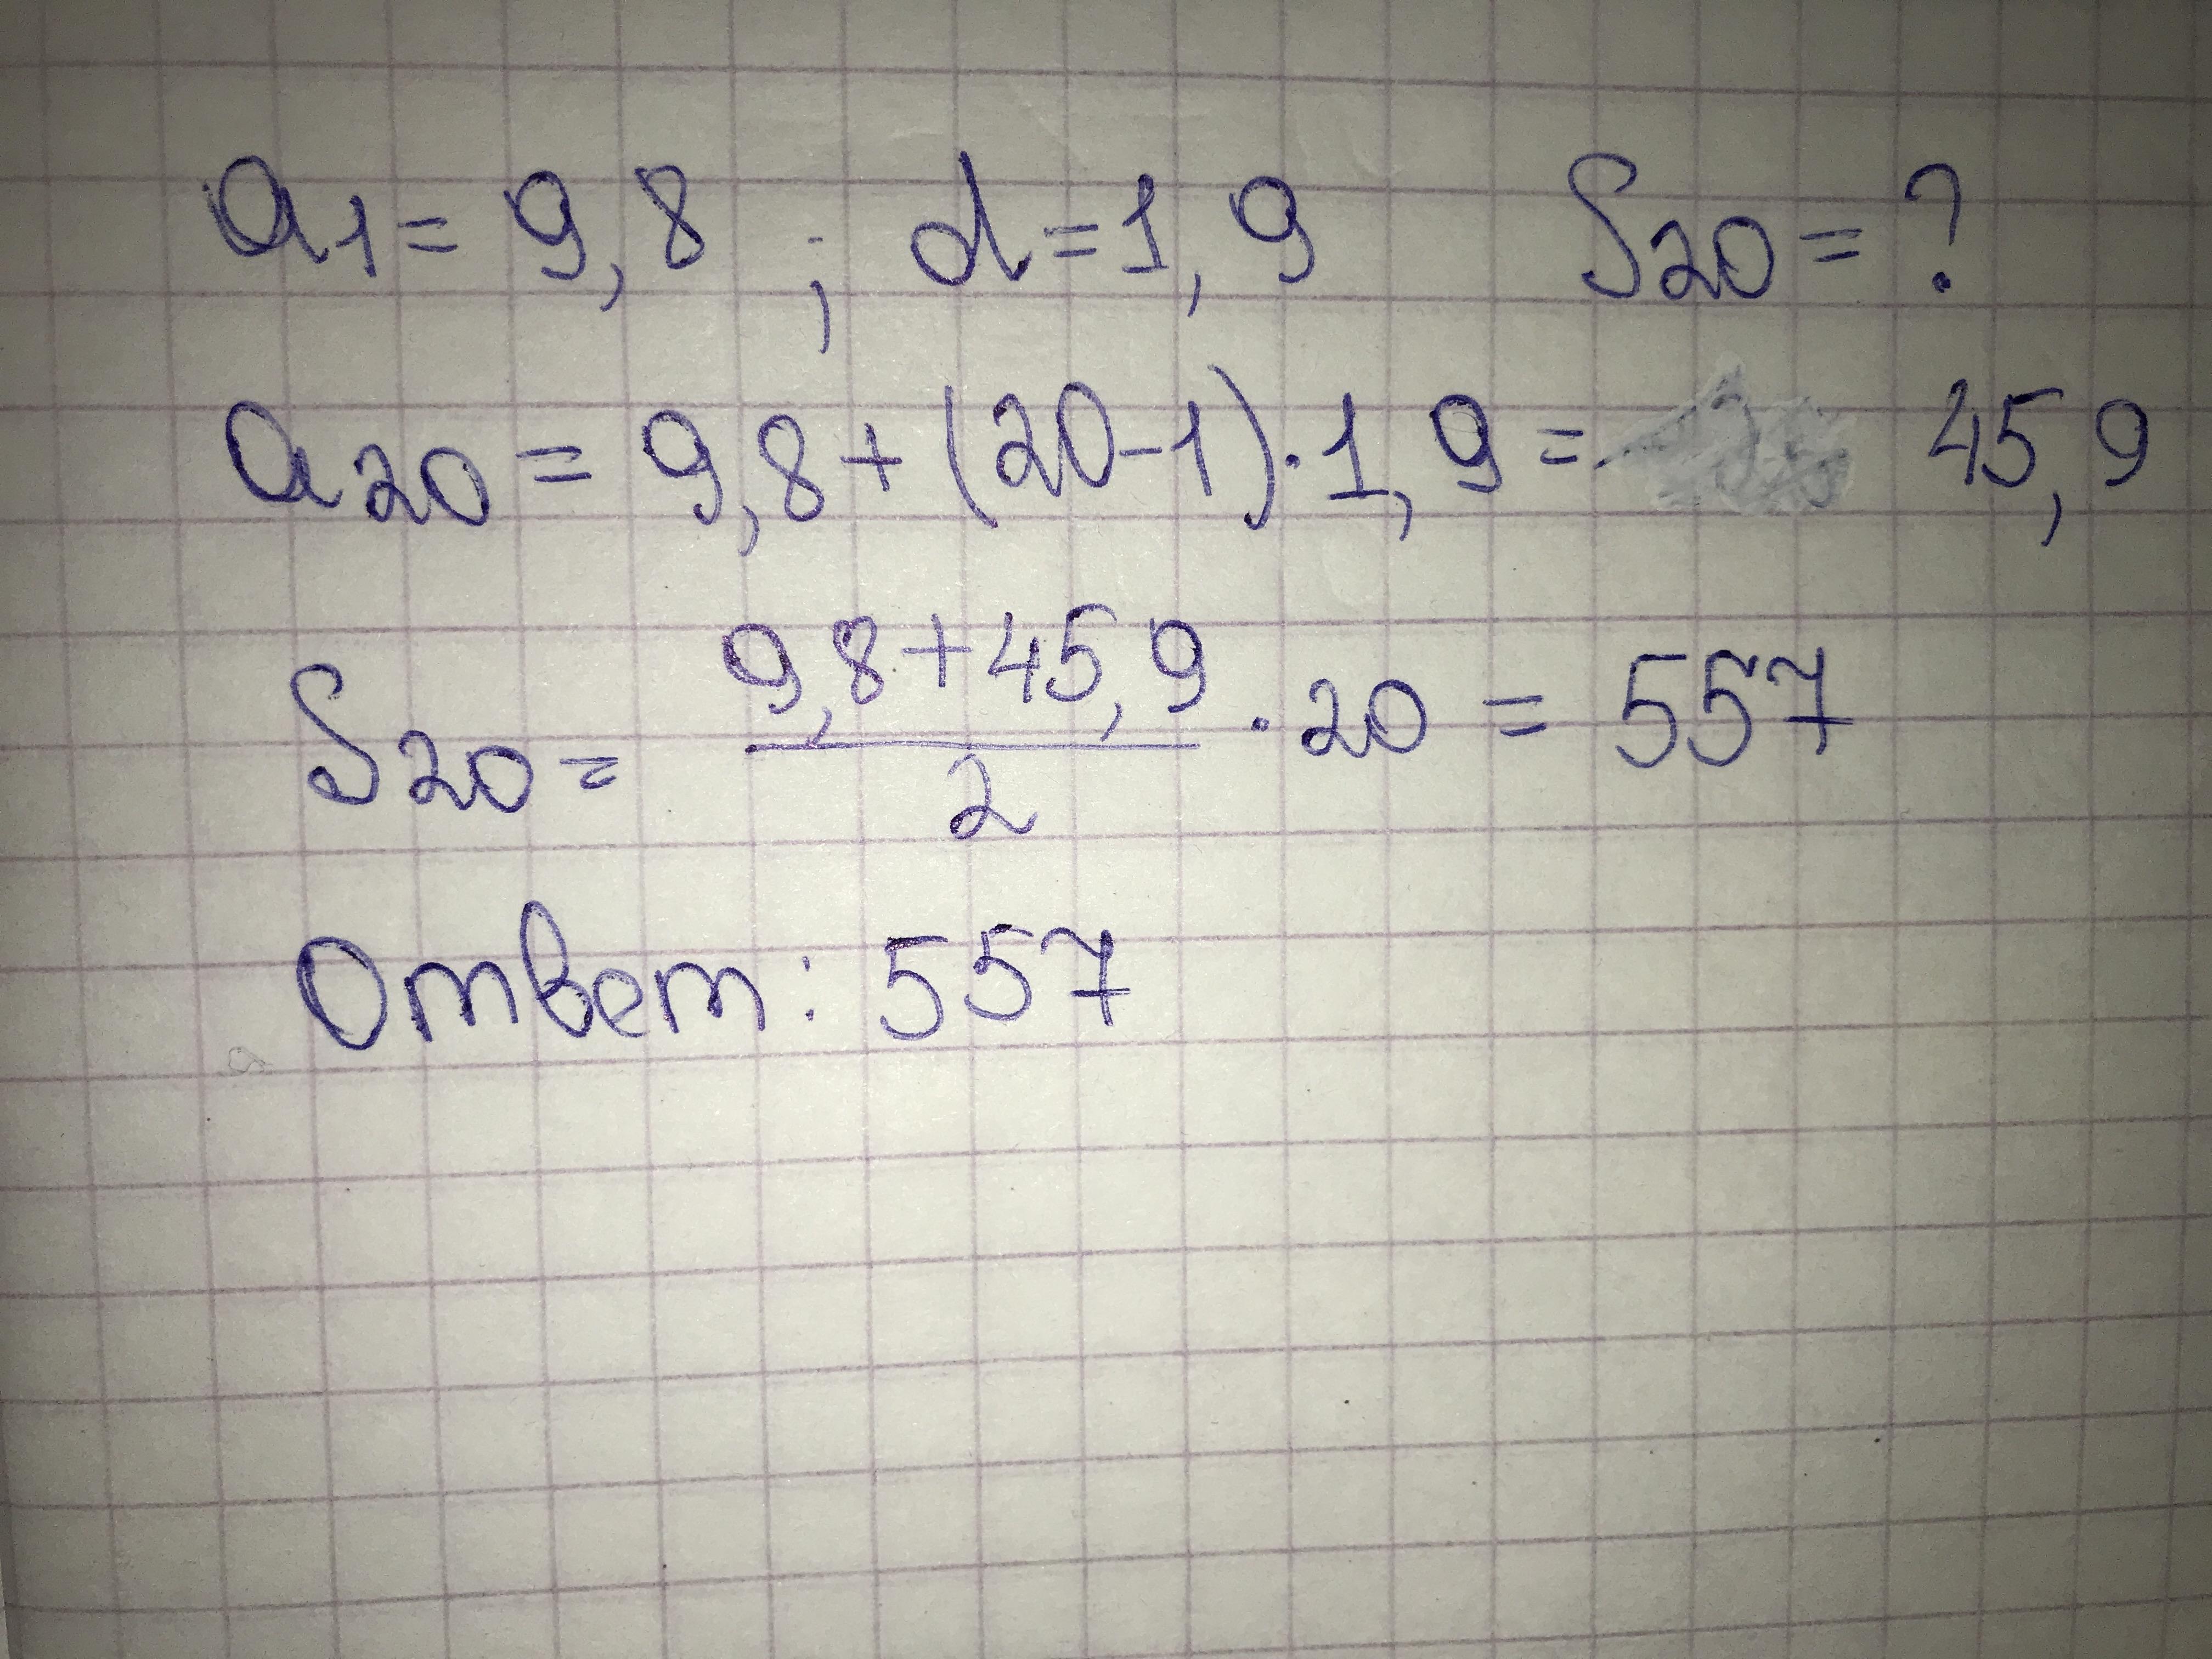 a1 = 9,8 ; d = 1,9 S20 = ?
a20 = 9,8 + (20-1) · 1,9 = 45,9
S20 = (9,8 + 45,9)/2 · 20 = 557
Ответ: 557